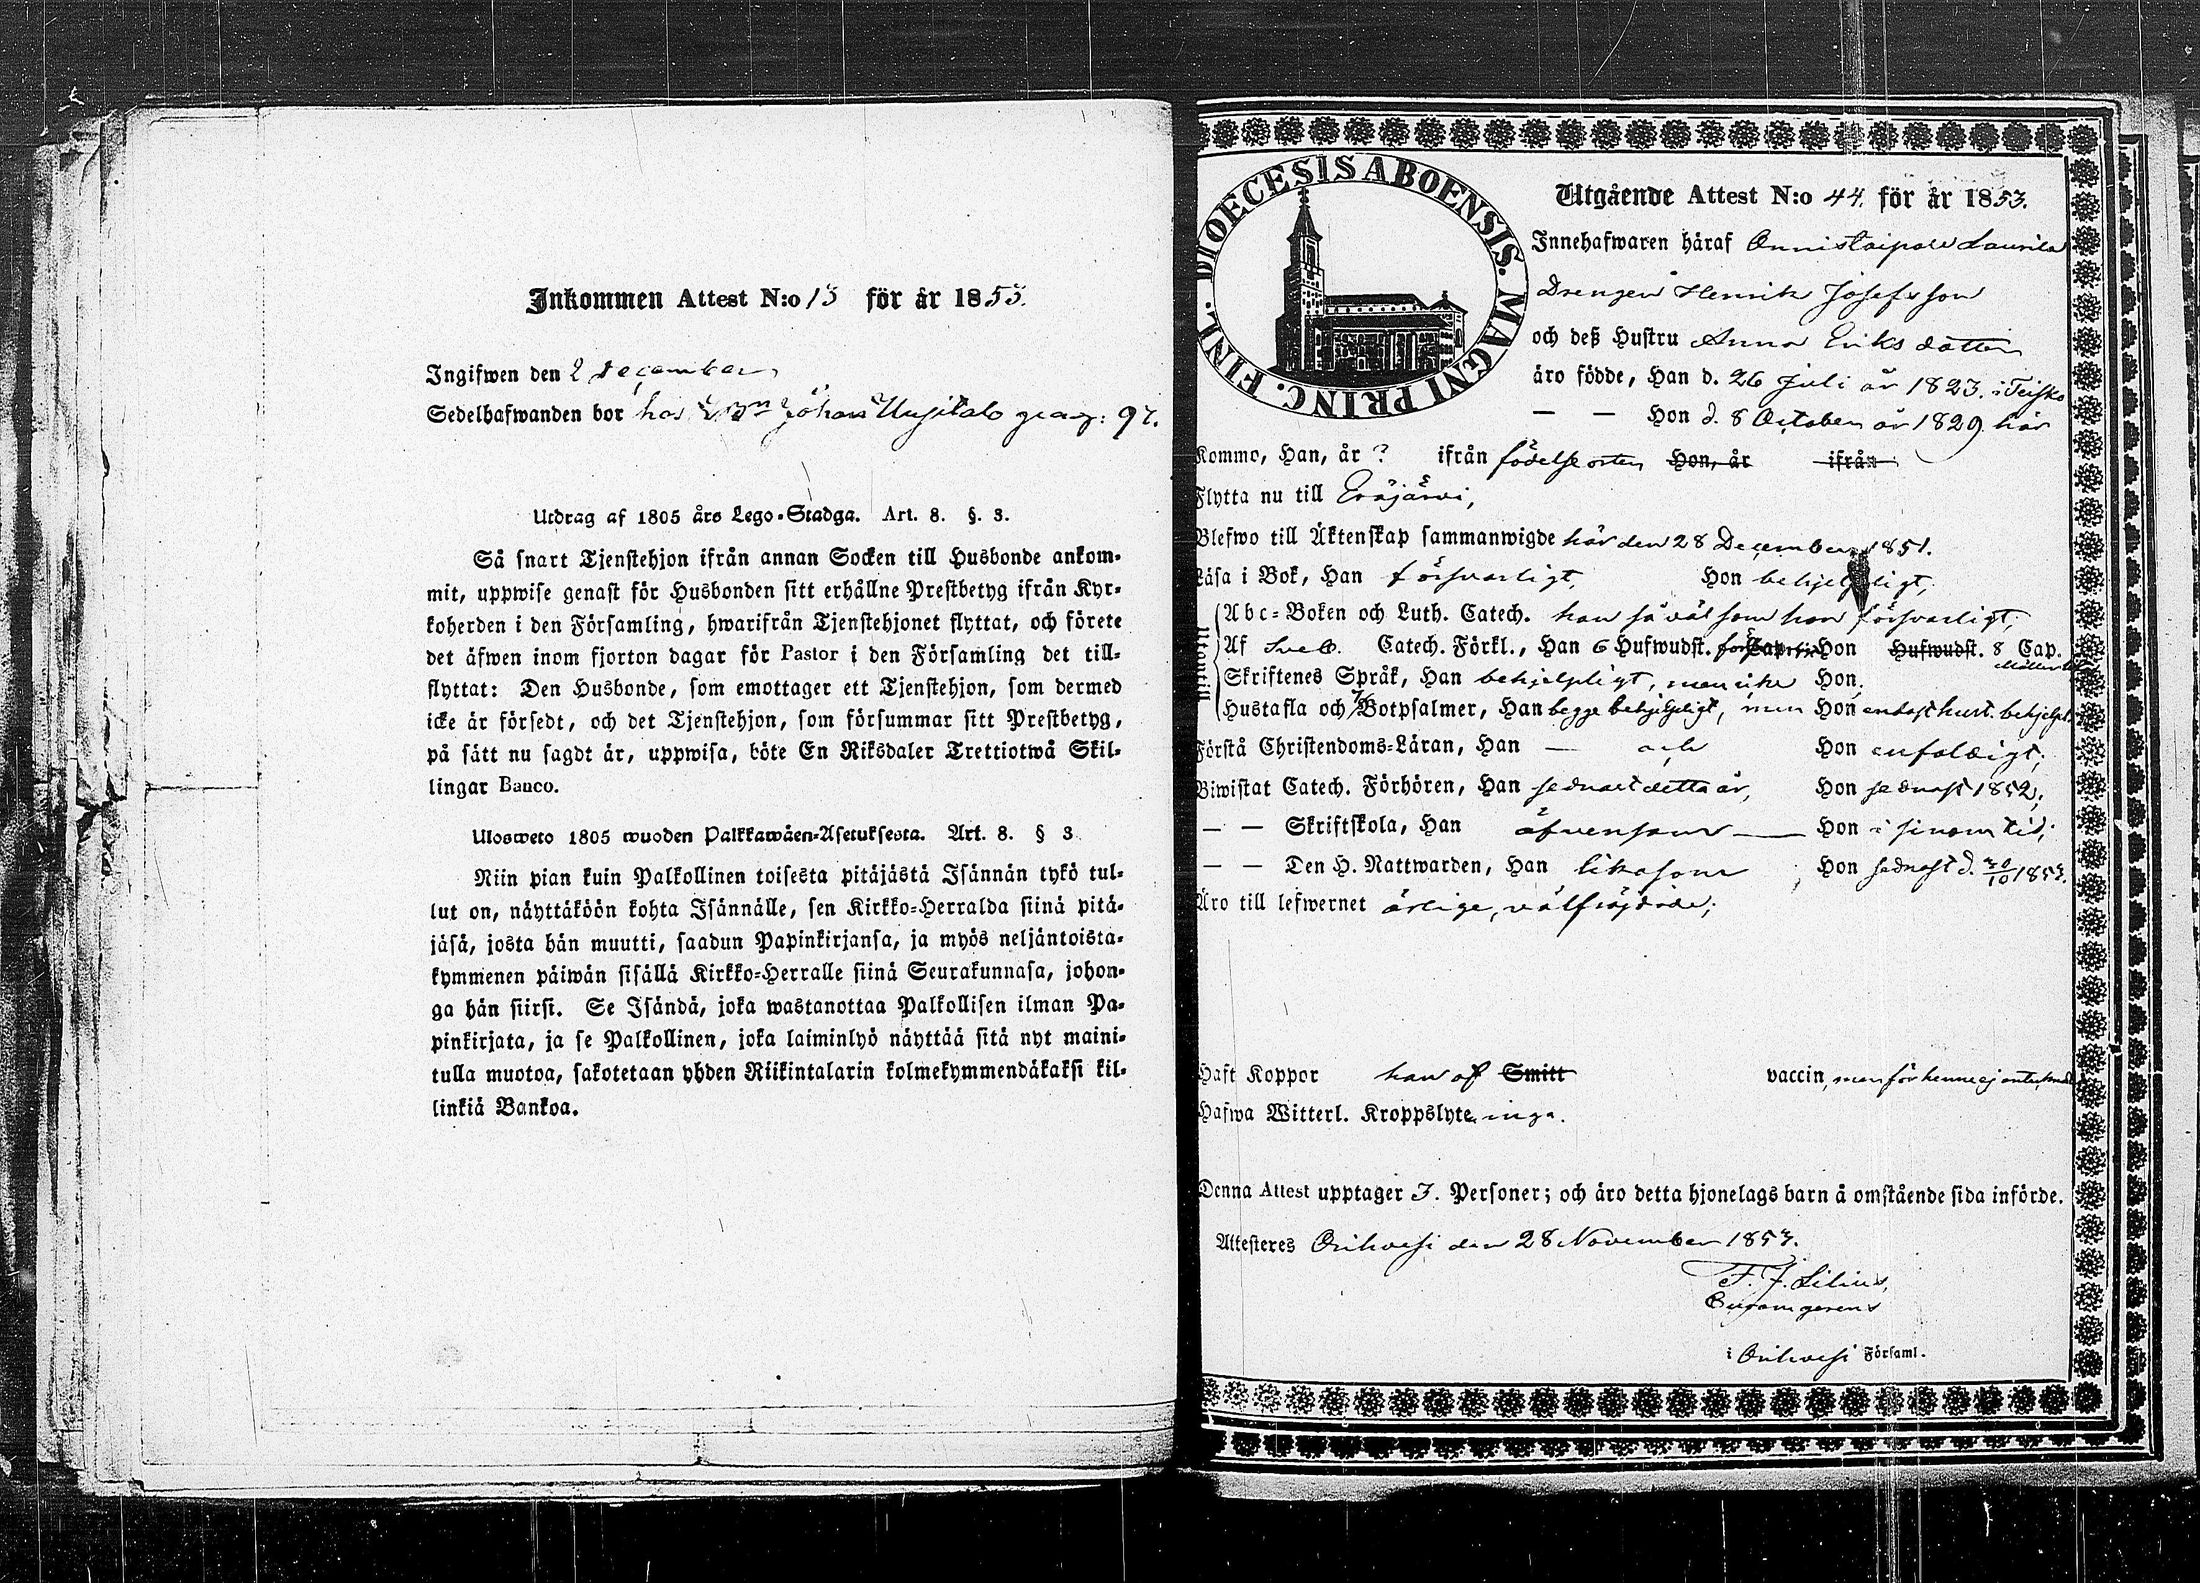 Inkommen Attest N:o 13 för år 1853.
Ingifwen den 2 December
Sedelhafwanden bor hos Johan Uusitalo pag: 97.
Utdrag af 1805 års Lego-Stadga. Art. 8. §. 3.
Så snart Tjenstehjon ifrån annan Socken till Husbonde ankom-
mit, uppwise genast för Husbonden sitt erhållne Prestbetyg ifrån Kyr-
koherden i den Församling, hwarifrån Tjenstehjonet flyttat, och förete
det äfwen inom fjorton dagar för Pastor i den Församling det till-
flyttat: Den Husbonde, som emottager ett Tjenstehjon, som dermed
icke är försedt, och det Tjenstehjon, som försummar sitt Prestbetyg,
på sätt nu sagdt är, uppwisa, böte En Riksdaler Trettiotwå Skil-
lingar Banco.
Ulosweto 1805 wuoden Palkkawäen-Asetuksesta. Art. 8. § 3
Niin pian kuin Palkollinen toisesta pitäjästä Isännän tykö tul-
lut on, näyttäköön kohta Isännälle, sen Kirkko-Herralda siinä pitä-
jäsä, josta hän muutti, saadun Papinkirjansa, ja myös neljäntoista-
kymmenen päiwän sisällä Kirkko-Herralle siinä Seurakunnasa, johon-
ga hän siirsi. Se Isändä, joka wastanottaa Palkollisen ilman Pa-
pinkirjata, ja se Palkollinen, joka laiminlyö näyttää sitä nyt maini-
tulla muotoa, sakotetaan yhden Riikintalarin kolmekymmendäkaksi kil-
linkiä Bankoa.
DIOECESIS ABOENSIS. MAGNI PRINC. FINL.
Utgående Attest N:o 44. för år 1853.
Innehafwaren häraf Onnistaipale Laurila
Drengen Henrik Josefsson
och deß Hustru Anna Eriksdotter
äro födde, Han d. 26 Juli år 1823. i Teisko
— — Hon d. 8 October år 1829. här
Kommo, Han, år ? ifrån födelseorten Hon, år ifrån
Flytta nu till Eräjärvi,
Blefwo till Äktenskap sammanwigde här den 28 December 1851.
Läsa i Bok, Han försvarligt, Hon behjelpligt,
Abc-Boken och Luth. Catech. han så väl som hon försvarligt;
Af Sveb. Catech. Förkl., Han 6 Hufwudst. Cap. Hon Hufwudst. 8 Cap.
Skriftenes Språk, Han behjelpligt, men icke Hon,
Hustafla och 7 Botpsalmer, Han begge behjelpligt, men Hon endast hust. behjelpl.
Förstå Christendoms-Läran, Han — och Hon enfaldigt;
Biwistat Catech. Förhören, Han sednast detta år, Hon sednast 1852;
— — Skriftskola, Han äfvensom — Hon i sinom tid;
— — Den H. Nattwarden, Han likasom Hon sednast d. 30/10 1853.
Äro till lefwernet ärlige, välfrägdade;
Haft Koppor han af Smitt vaccin, men för henne ej
Hafwa Witterl. Kroppslyte inga.
Denna Attest upptager 3. Personer; och äro detta hjonelags barn å omstående sida införde.
Attesteres Orihvesi den 28 November 1853.
F. J. Lilius,
i Orihvesi Församl.